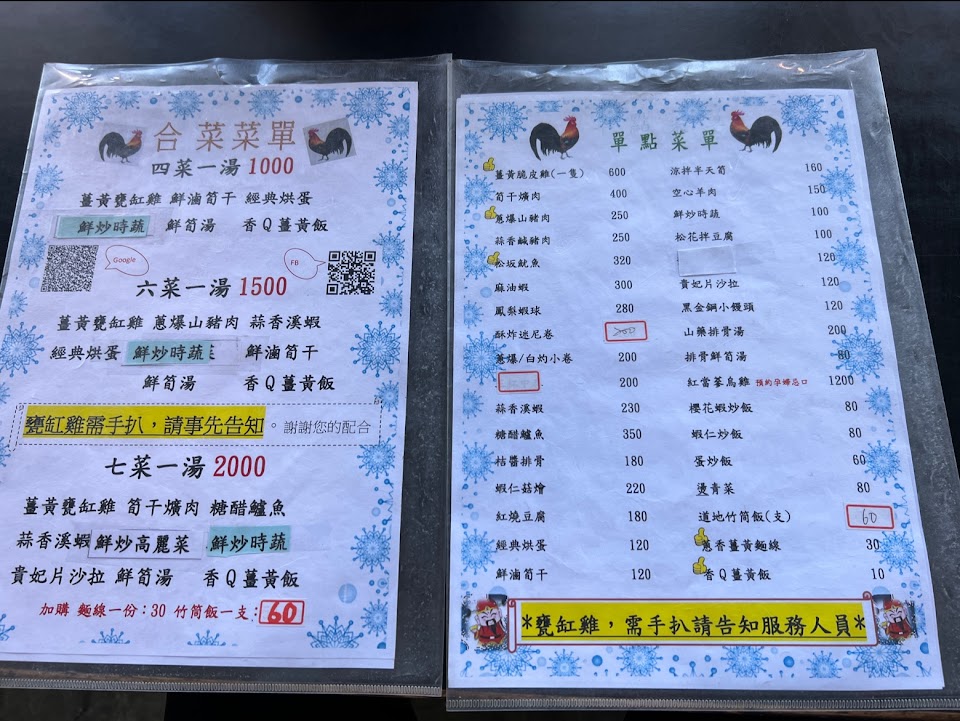 合菜菜單
四菜一湯 1000
薑黃甕缸雞 鮮滷筍干 經典烘蛋
鮮炒時蔬 鮮筍湯 香Q薑黃飯
Google
FB
六菜一湯 1500
薑黃甕缸雞 蔥爆山豬肉 蒜香溪蝦
經典烘蛋 鮮炒時蔬 鮮滷筍干
鮮筍湯 香Q薑黃飯
甕缸雞需手扒，請事先告知。謝謝您的配合
七菜一湯 2000
薑黃甕缸雞 筍干爌肉 糖醋鱸魚
蒜香溪蝦 鮮炒高麗菜 鮮炒時蔬
貴妃片沙拉 鮮筍湯 香Q薑黃飯
加購 麵線一份：30 竹筒飯一支：60
單點菜單
薑黃脆皮雞(一隻) 600
筍干爌肉 400
蔥爆山豬肉 250
蒜香鹹豬肉 250
松坂魷魚 320
麻油蝦 300
鳳梨蝦球 280
酥炸迷尼卷
蔥爆/白灼小卷 200
200
蒜香溪蝦 230
糖醋鱸魚 350
桔醬排骨 180
蝦仁菇燴 220
紅燒豆腐 180
經典烘蛋 120
鮮滷筍干 120
涼拌半天筍 160
空心羊肉 150
鮮炒時蔬 100
松花拌豆腐 100
120
貴妃片沙拉 120
黑金鋼小饅頭 120
山藥排骨湯 200
排骨鮮筍湯 80
紅當蔘烏雞 預約孕婦忌口 1200
櫻花蝦炒飯 80
蝦仁炒飯 80
蛋炒飯 60
燙青菜 80
道地竹筒飯(支) 60
蔥香薑黃麵線 30
香Q薑黃飯 10
*甕缸雞，需手扒請告知服務人員*